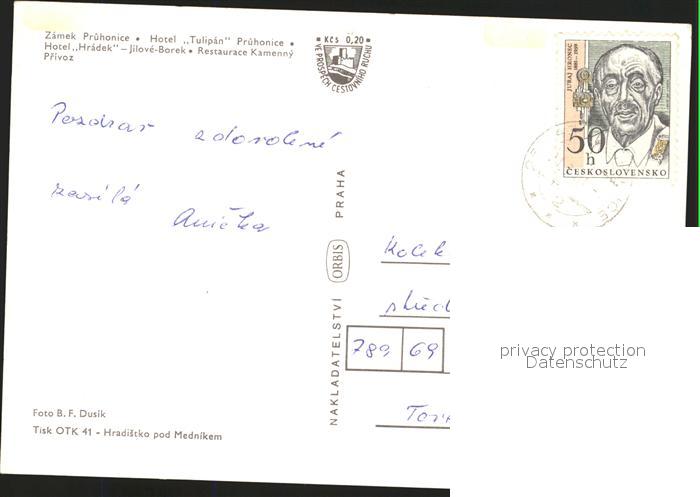 Zámek Průhonice • Hotel „Tulipán" Průhonice •
Hotel „Hrádek" – Jílové-Borek • Restaurace Kamenný
Přívoz
Kčs 0,20
VE PROSPĚCH CESTOVNÍHO RUCHU
JURAJ HRONEC
1881 - 1959
50
h
ČESKOSLOVENSKO
Pozdrav z dovolené
zasílá
Anička
NAKLADATELSTVÍ ORBIS PRAHA
Kolek
789 69
privacy protection
Datenschutz
Foto B. F. Dusík
Tisk OTK 41 - Hradištko pod Medníkem